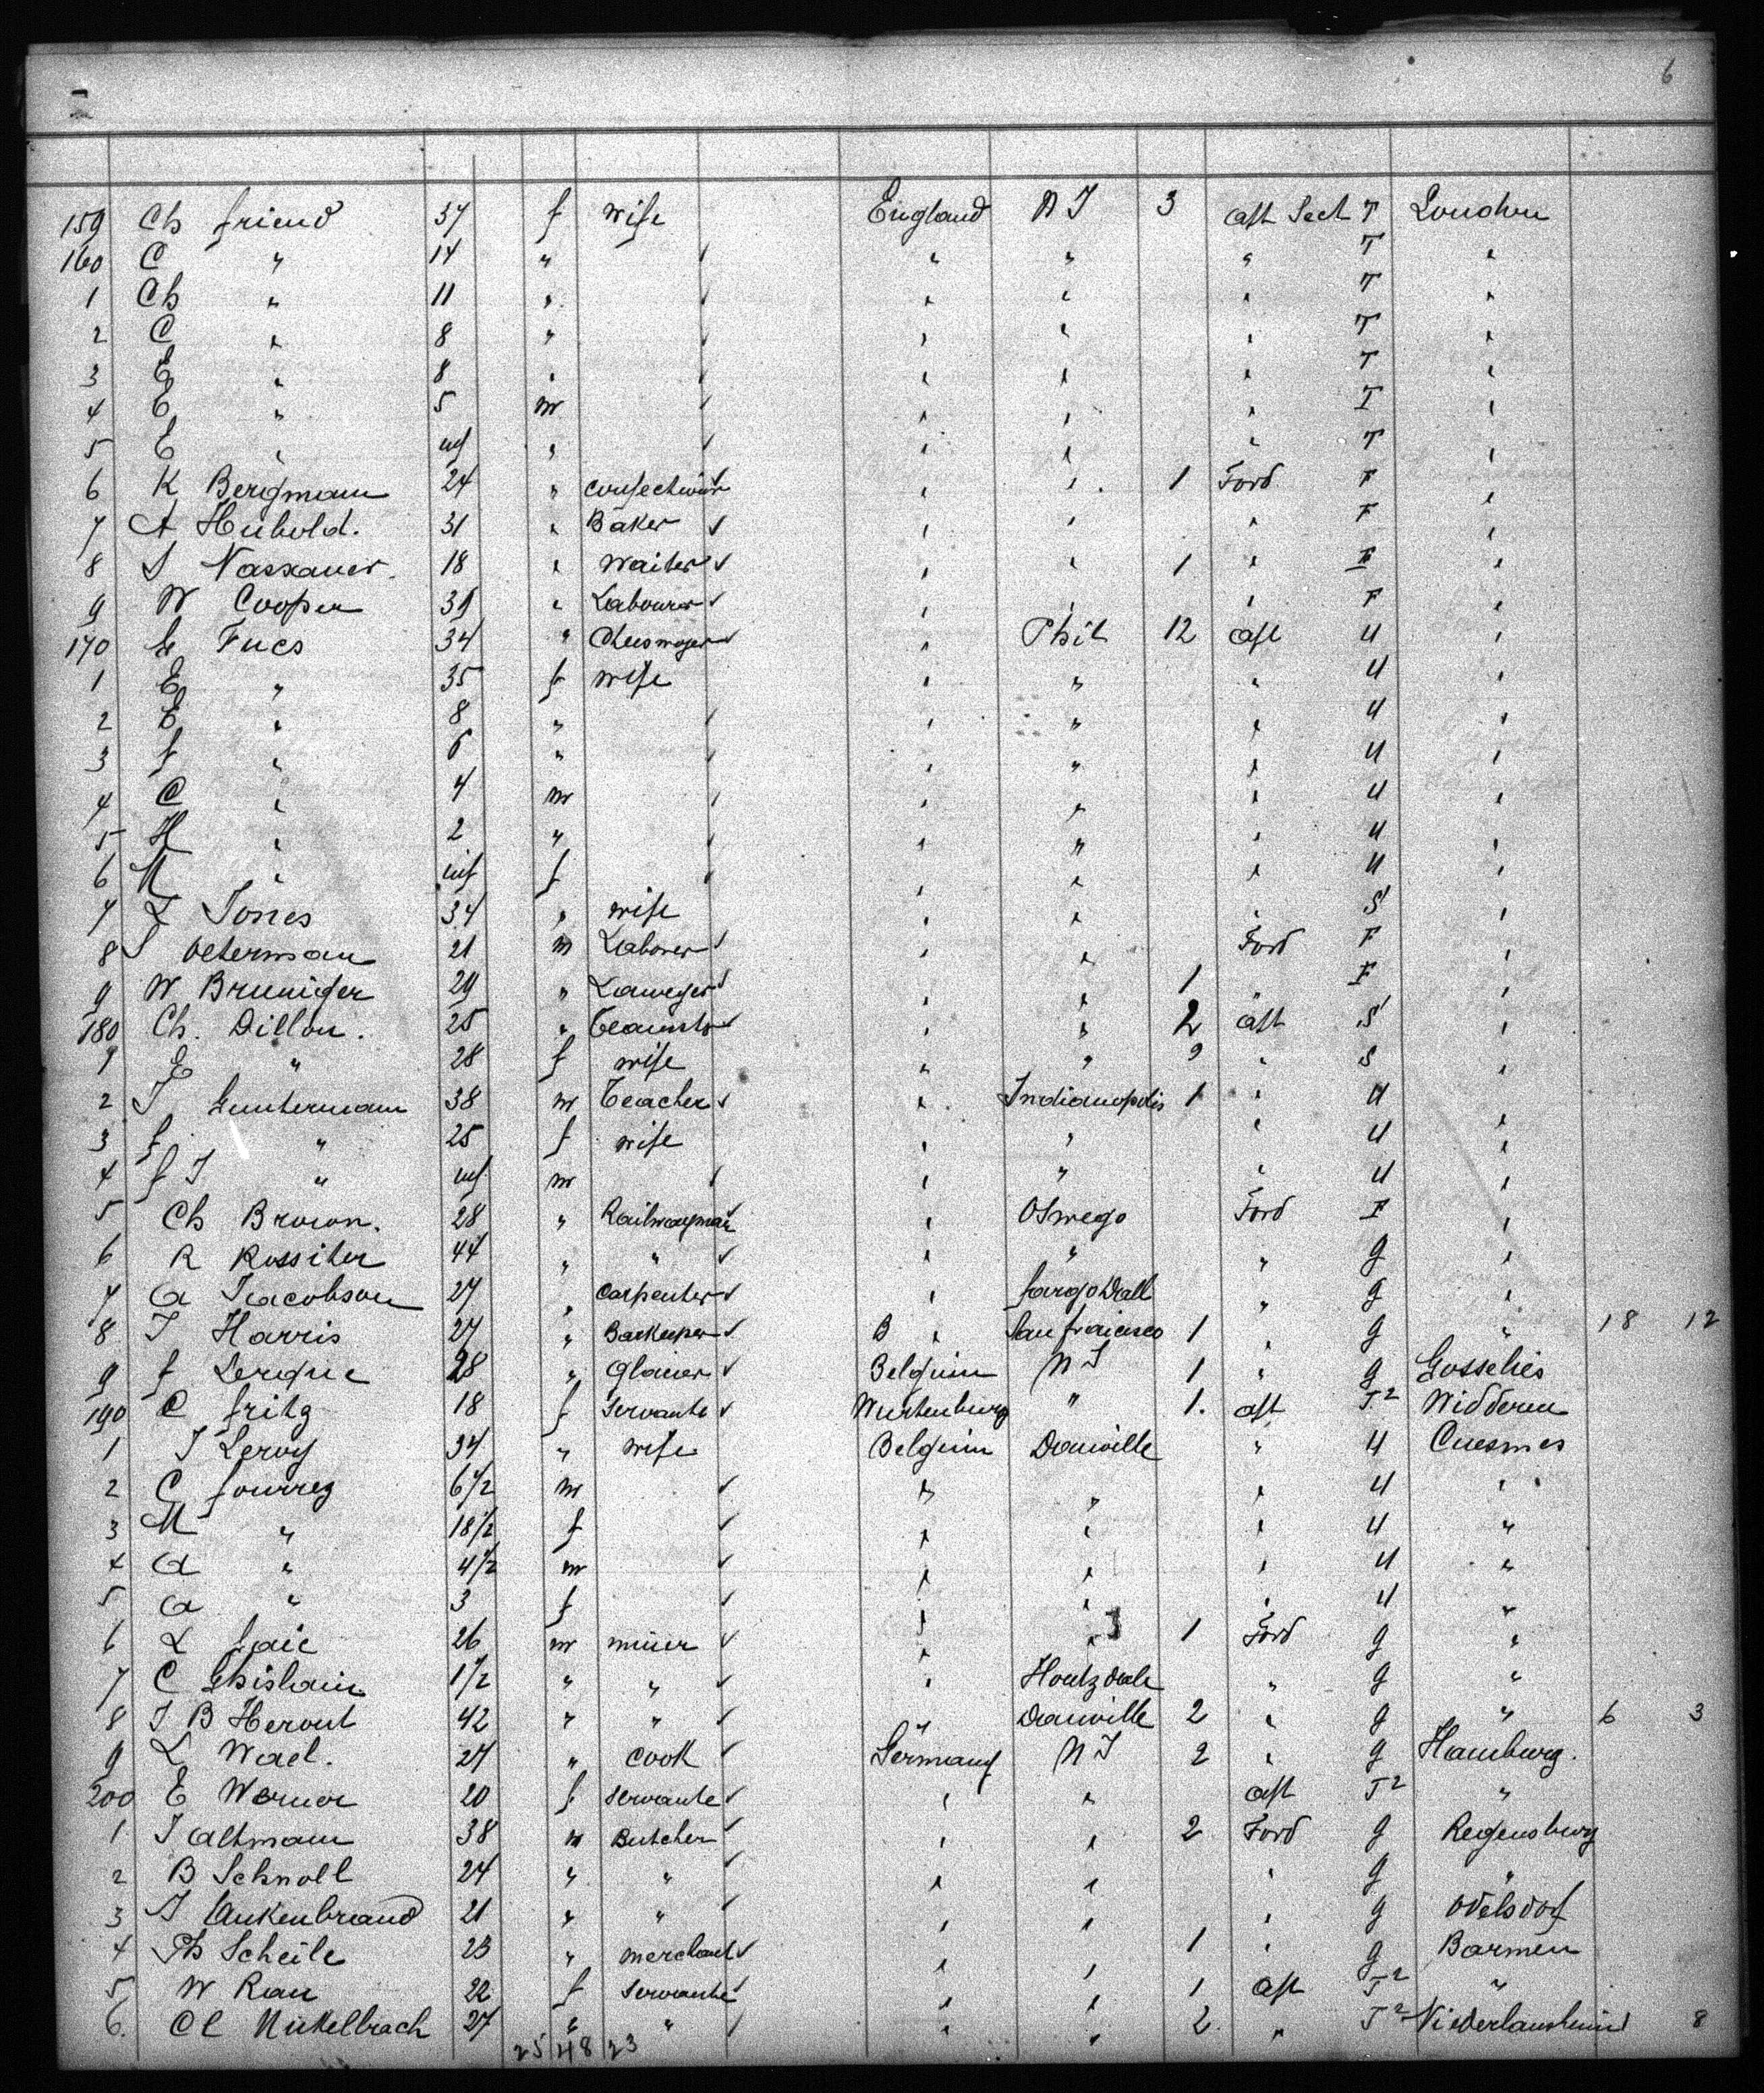 6
159 Ch friend 37 f wife England N J 3 aft Sect T London
160 C " 14 " " " " T "
1 Ch " 11 " " " " T "
2 C " 8 " " " " T "
3 E " 8 " " " " T "
4 E " 5 m " " " T "
5 E " inf " " " " T "
6 K Bergman 24 " " " 1 Ford F "
7 A Hubold. 31 " Baker " " " F "
8 S Nassauer. 18 " Waiter " " 1 " F "
9 W Cooper 39 " Labourer " " " F "
170 Fues 34 " " Phil 12 aft U "
1 E " 35 f wife " " " U "
2 E " 8 " " " " U "
3 f " 6 " " " " U "
4 C " 4 m " " " U "
5 H " 2 " " " " U "
6 M " inf f " " " U "
7 L Jones 34 " wife " " " S "
8 S Oeterman 21 m Laborer " " Ford F "
9 W Bruniger 29 " " " 1 " F "
180 Ch. Dillon. 25 " Teamster " " 2 aft S "
1 E " 28 f wife " " " S "
2 J Guntermann 38 m Teacher " Indianopolis 1 " U "
3 f " 25 f wife " " " U "
4 f J " inf m " " " U "
5 Ch Brown. 28 " Railwayman " Oswego Ford F "
6 R Rossiter 44 " " " " " g "
7 A Jacobson 27 " Carpenter " fargo Dall " g "
8 J Harris 27 " Barkeeper B " San francisco 1 " g " 18 12
9 f Lerque 28 " Glacier Belgium N J 1 " g Gosselies
190 C fritz 18 f Servante Wurtenburg " 1. aft T2 Widdern
1 J Leroy 34 " wife Belgium Danville " U Cuesmes
2 C fourrez 6 1/2 m " " " U "
3 M " 18 1/2 f " " " U "
4 A " 4 1/2 m " " " U "
5 A " 3 f " " " U "
6 L 26 m miner " " 1 Ford g "
7 C Ghislain 1 1/2 " " " Houtzdale " g "
8 J B Herout 42 " " " Danville 2 " g " 6 3
9 L Wael. 27 " Cook Germany N J 2 " g Hamburg.
200 E Werner 20 f servante " " aft T2 "
1 J Altmann 38 m Butcher " " 2 Ford g Regensburg
2 B Schnoll 24 " " " " " g "
3 J Ankenbrand 21 " " " " " g Odelsdorf
4 Ph Scheile 23 " merchant " " 1 " g Barmen
5 W Rau 22 f servante " " 1 aft T2 "
6. Cl Nickelbach 27 " " " " 2. " T2 8
25 48 23